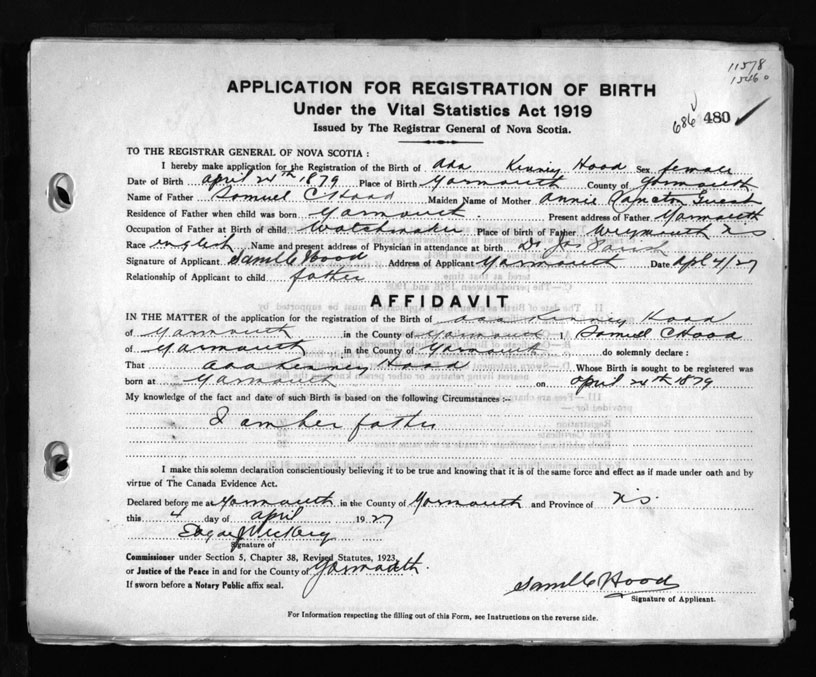 11578
15460
APPLICATION FOR REGISTRATION OF BIRTH
Under the Vital Statistics Act 1919
686 480
Issued by The Registrar General of Nova Scotia.
TO THE REGISTRAR GENERAL OF NOVA SCOTIA :
I hereby make application for the Registration of the Birth of Ada Kenney Hood Sex female
Date of Birth April 24th 1879 Place of Birth Yarmouth County of Yarmouth
Name of Father Samuel C Hood Maiden Name of Mother Annie Guest
Residence of Father when child was born Yarmouth Present address of Father Yarmouth
Occupation of Father at Birth of child Watchmaker Place of Birth of Father Weymouth NS
Race English Name and present address of Physician in attendance at birth Dr Jos
Signature of Applicant Saml C Hood Address of Applicant Yarmouth Date Apl 4/27
Relationship of Applicant to child father
AFFIDAVIT
IN THE MATTER of the application for the registration of the Birth of Ada Kenney Hood
of Yarmouth in the County of Yarmouth I, Samuel C Hood
of Yarmouth in the County of Yarmouth do solemnly declare :
That Ada Kenney Hood Whose Birth is sought to be registered was
born at Yarmouth on April 24th 1879
My knowledge of the fact and date of such Birth is based on the following Circumstances :-
I am her father
I make this solemn declaration conscientiously believing it to be true and knowing that it is of the same force and effect as if made under oath and by
virtue of The Canada Evidence Act.
Declared before me at Yarmouth in the County of Yarmouth and Province of NS
this 4 day of April 1927
Signature of
Commissioner under Section 5, Chapter 38, Revised Statutes, 1923,
or Justice of the Peace in and for the County of Yarmouth.
If sworn before a Notary Public affix seal.
Saml C Hood
Signature of Applicant.
For Information respecting the filling out of this Form, see Instructions on the reverse side.